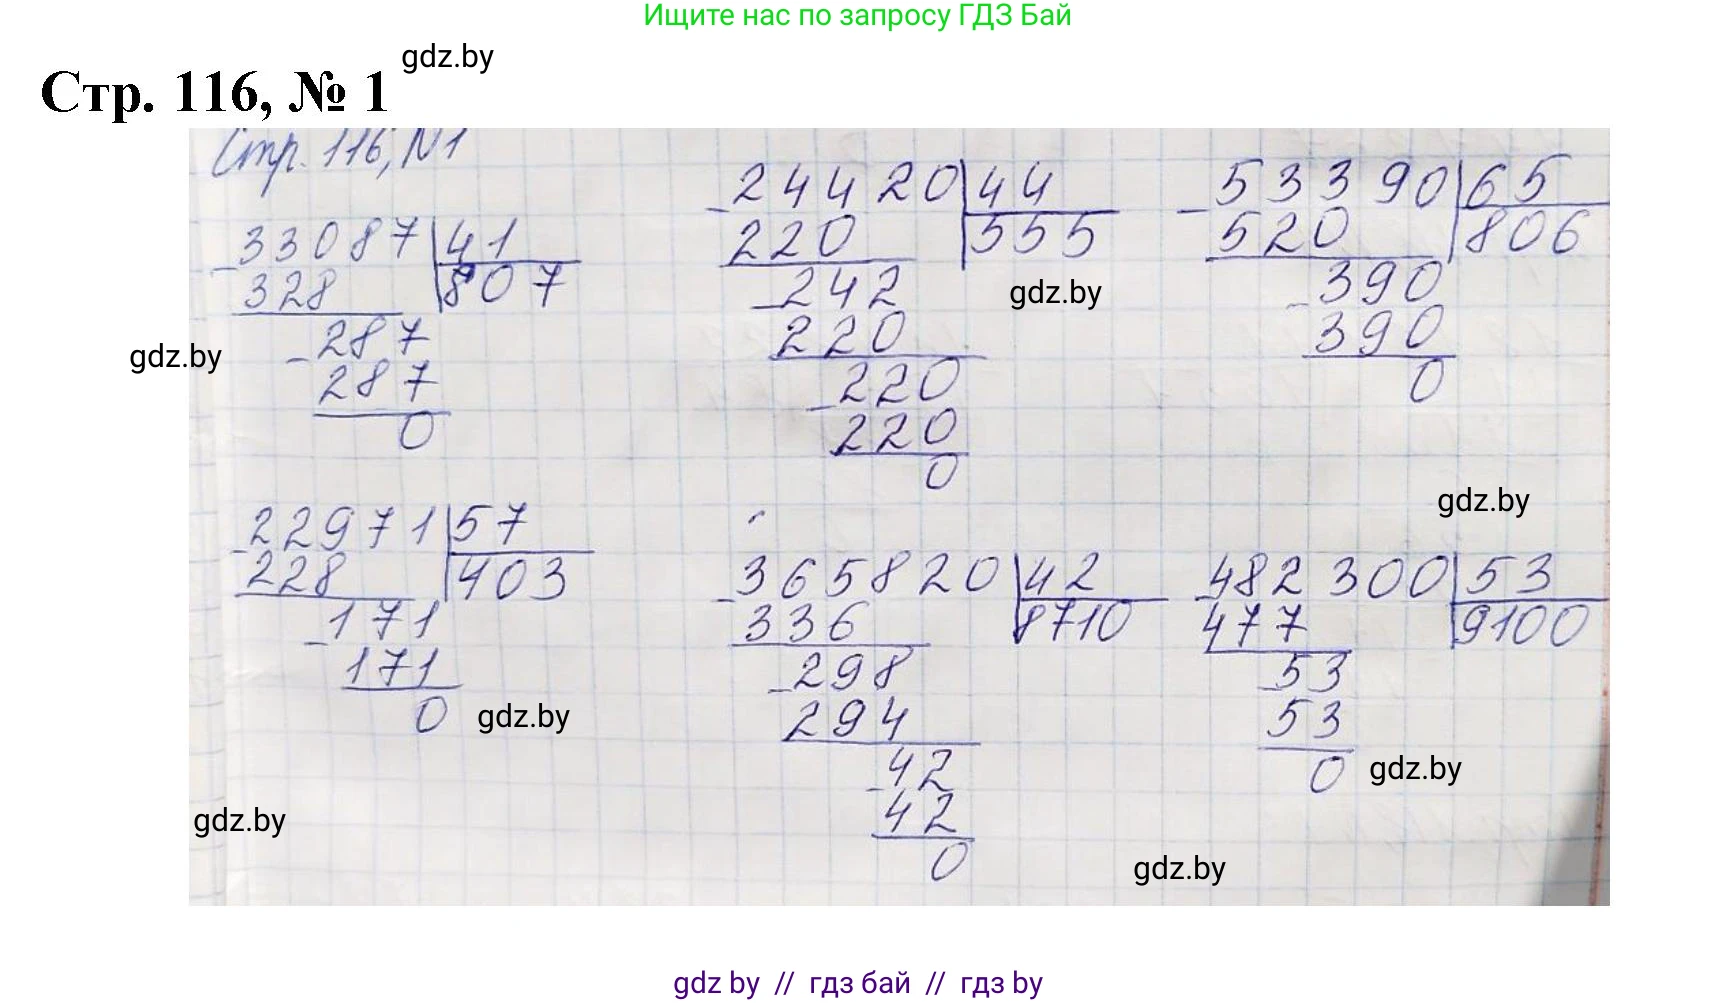 Ищите нас по запросу ГДЗ Бай
gdz.by
Стр. 116, № 1
Стр. 116, N1
33087 41
328 807
287
287
0
24420 44
220 555
242
220
220
220
0
53390 65
520 806
390
390
0
gdz.by
gdz.by
gdz.by
22971 57
228 403
171
171
0
365820 42
336 8710
298
294
42
42
0
482300 53
477 9100
53
53
0
gdz.by
gdz.by
gdz.by
gdz.by
gdz by // гдз бай // gdz by